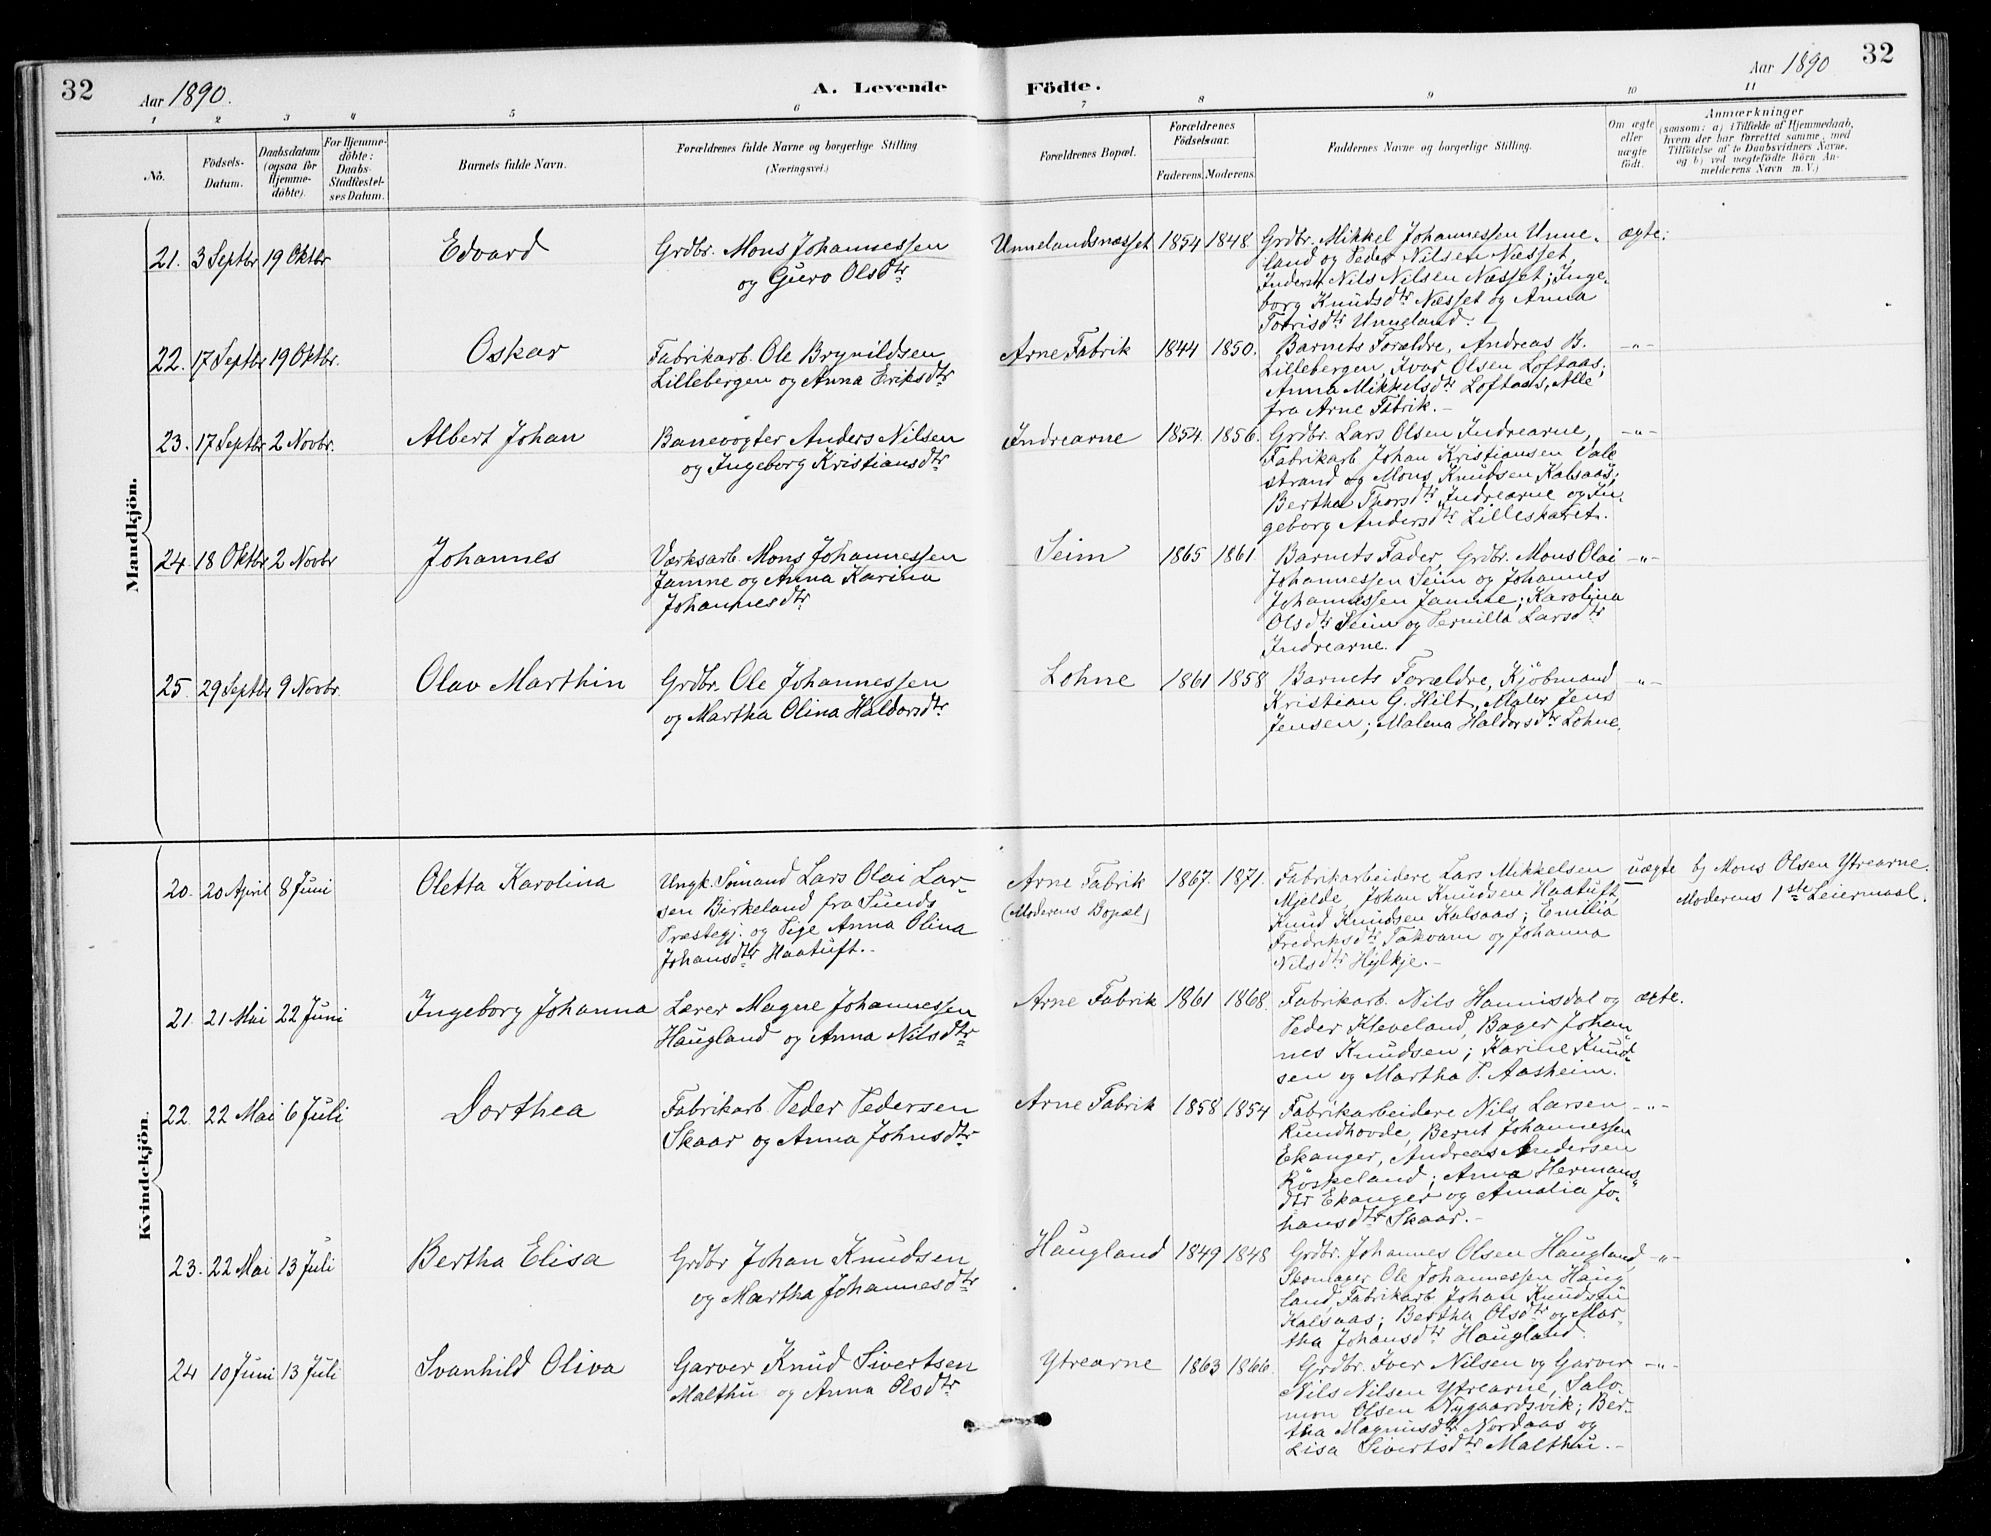 32
Aar 1890.
A. Levende
Födte.
Aar 1890
32
1
2
3
4
5
6
7
8
9
10
11
No.
Födsels-
Datum.
Daabsdatum
(ogsaa for
Hjemme-
döbte).
For Hjemme-
döbte:
Daabs-
Stadfæstel-
ses Datum.
Barnets fulde Navn.
Forældrenes fulde Navne og borgerlige Stilling
(Næringsvei.)
Forældrenes Bopæl.
Forældrenes
Födselsaar.
Faderens.
Moderens.
Faddernes Navne og borgerlige Stilling.
Om ægte
eller
uægte
födt.
Anmærkninger
(saasom: a) i Tilfælde af Hjemmedaab,
hvem der har forrettet samme, med
Tilföielse af to Daabsvidners Navne,
og b) ved uægtefödte Börn An-
melderens Navn m. V.)
Mandkjön.
21. 3 Septbr 19 Oktbr
Edvard
Grdbr. Mons Johannessen
og Guro Olsdtr
Unnelandsnæsset 1854 1848.
Grdbr. Mikkel Johannessen Unne-
land og Peder Nilsen Næsset,
Inderst Nils Nilsen Næsset; Inge-
borg Knudsdtr Næsset og Anna
Unneland.
ægte:
22. 17 Septbr 19 Oktbr.
Oskar
Fabrikarb. Ole Brynildsen
Lillebergen og Anna Eriksdtr
Arne Fabrik 1844 1850.
Barnets Forældre, Andreas B.
Lillebergen, Ivar Olsen Loftaas;
Anna Mikkelsdtr Loftaas, Alle
fra Arne Fabrik.-
-"-
23. 17 Septbr 2 Novbr.
Albert Johan
Banevogter Anders Nilsen
og Ingeborg Kristiansdtr
Indrearne 1854. 1856.
Grdbr. Lars Olsen Indrearne,
Fabrikarb Johan Kristiansen Vale
strand og Mons Knudsen Kalsaas;
Bertha Thorsdtr Indrearne og In-
geborg Andersdtr Lilleskaret.
-"-
24. 18 Oktbr 2 Novbr
Johannes
Værksarb. Mons Johannessen
Jamne og Anna Karina
Johannesdtr
Seim 1865 1861.
Barnets Fader, Grdbr. Mons Olai
Johannessen Seim og Johannes
Johannessen Jamne; Karolina
Olsdtr Seim og Pernilla Larsdtr
Indrearne.
-"-
25. 29 Septbr 9 Novbr.
Olav Marthin
Grdbr. Ole Johannessen
og Martha Olina Haldorsdtr
Lohne 1861 1858
Barnets Forældre, Kjöbmand
Kristian G. Hilt, Maler Jens
Jensen; Malena Haldorsdtr Lohne.
-"-
Kvindekjön.
20. 20 April 8 Juni
Oletta Karolina
Ungk. Sömand Lars Olai Lar-
sen Birkeland fra Sunds
Præstegj. og Pige Anna Olina
Johansdtr Haatuft.-
Arne Fabrik
(Moderens Bopæl)
1867. 1871.
Fabrikarbeidere Lars Mikkelsen
Mjelde, Johan Knudsen Haatuft,
Knud Knudsen Kalsaas; Emilia
Fredriksdtr Takvam og Johanna
Nilsdtr Hylkje.-
uægte
b) Mons Olsen Ytrearne.
Moderens 1ste Leiermaal.
21. 21 Mai 22 Juni
Ingeborg Johanna
Lærer Magne Johannessen
Haugland og Anna Nilsdtr
Arne Fabrik 1861 1868.
Fabrikarb. Nils Hannisdal og
Peder Kleveland, Bager Johan-
nes Knudsen; Karine Knud-
sen og Martha P. Aasheim.
ægte.
22. 22 Mai 6 Juli
Dorthea
Fabrikarb. Peder Pedersen
Skaar og Anna Johnsdtr
Arne Fabrik 1858 1854
Fabrikarbeidere Nils Larsen
Rundhovde, Bernt Johannessen
Ekanger, Andreas Andersen
Röskeland; Anna Hermans-
dtr Ekanger og Amalia Jo-
hansdtr Skaar.-
-"-
23. 22 Mai 13 Juli
Bertha Elisa
Grdbr Johan Knudsen
og Martha Johannesdtr
Haugland 1849 1848
Grdbr. Johannes Olsen Haugland,
Skomager Ole Johannessen Haug
land, Fabrikarb Johan Knudsen
Kalsaas; Bertha Olsdtr og Mar-
tha Johansdtr Haugland.
-"-
24 10 Juni 13 Juli
Svanhild Oliva
Garver Knud Sivertsen
Malthu og Anna Olsdtr
Ytrearne 1863 1866.
Grdbr. Iver Nilsen og Garver
Nils Nilsen Ytrearne, Salo-
mon Olsen Nygaardsvik; Ber-
tha Magnusdtr Nordaas og
Lisa Sivertsdtr Malthu.-
-"-